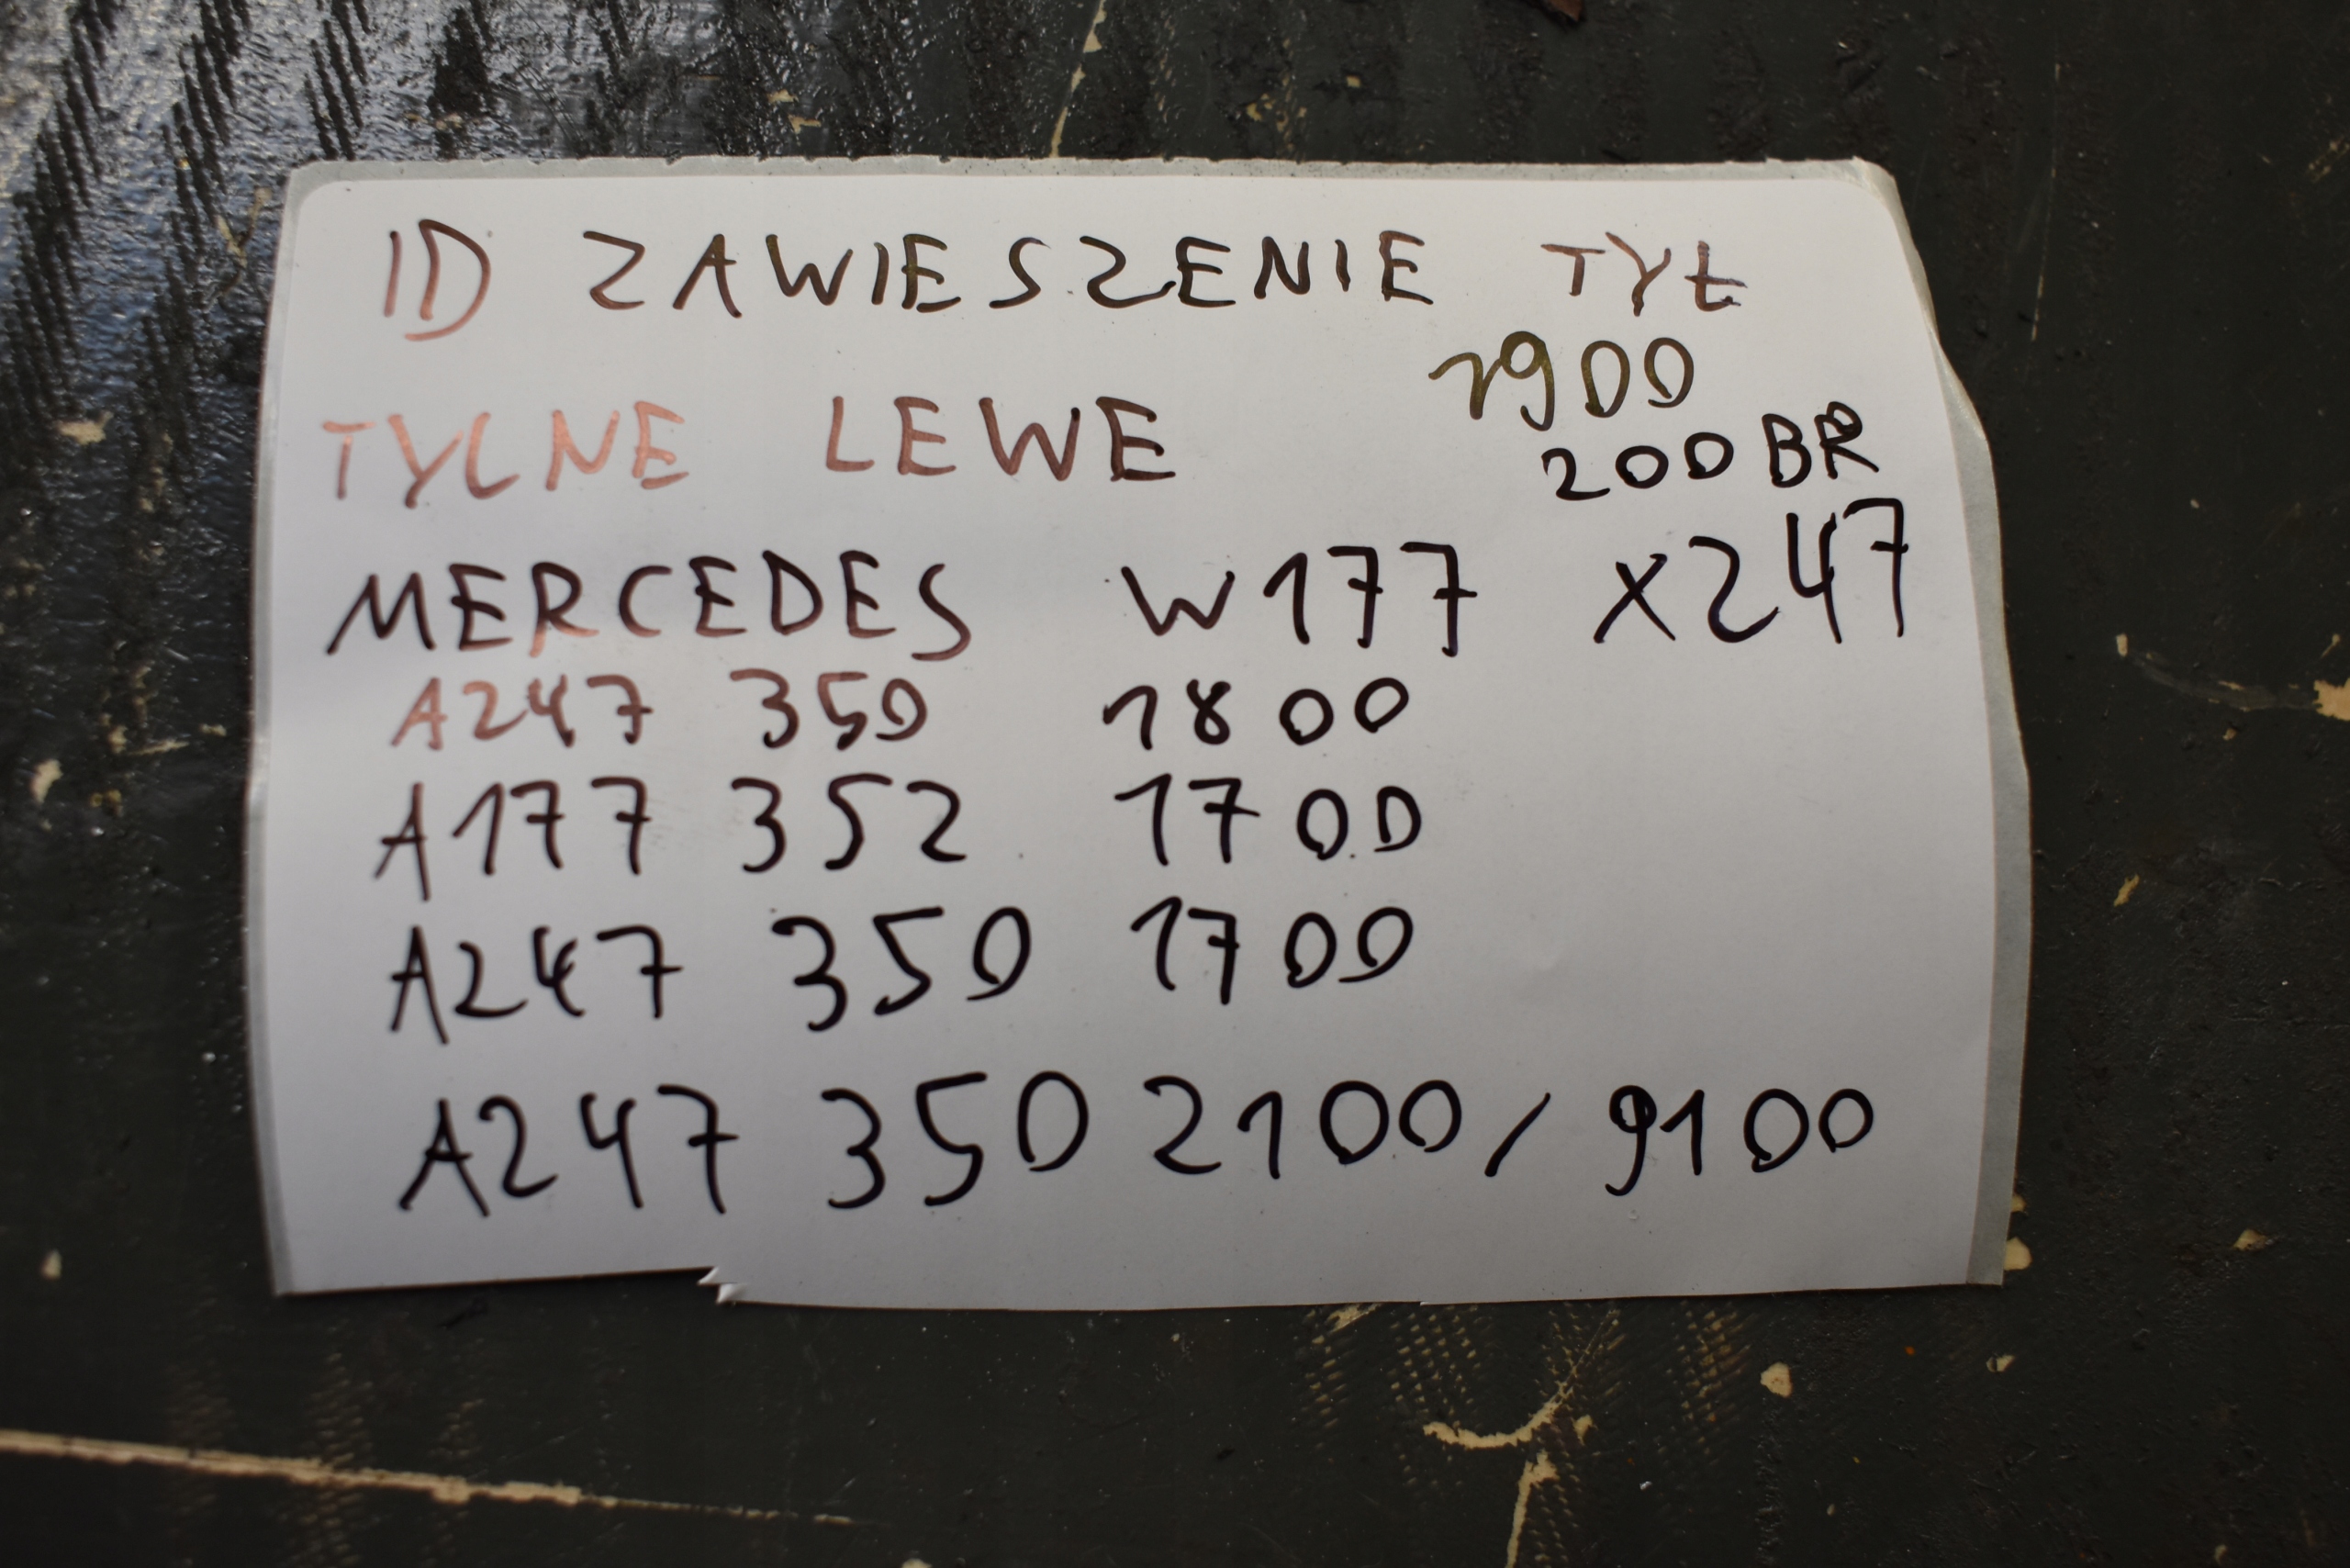 ID ZAWIESZENIE TYŁ
1900
TYLNE LEWE
200 BR
MERCEDES W177 X247
A247 350 1800
A177 352 1700
A247 350 1700
A247 350 2100 / 9100